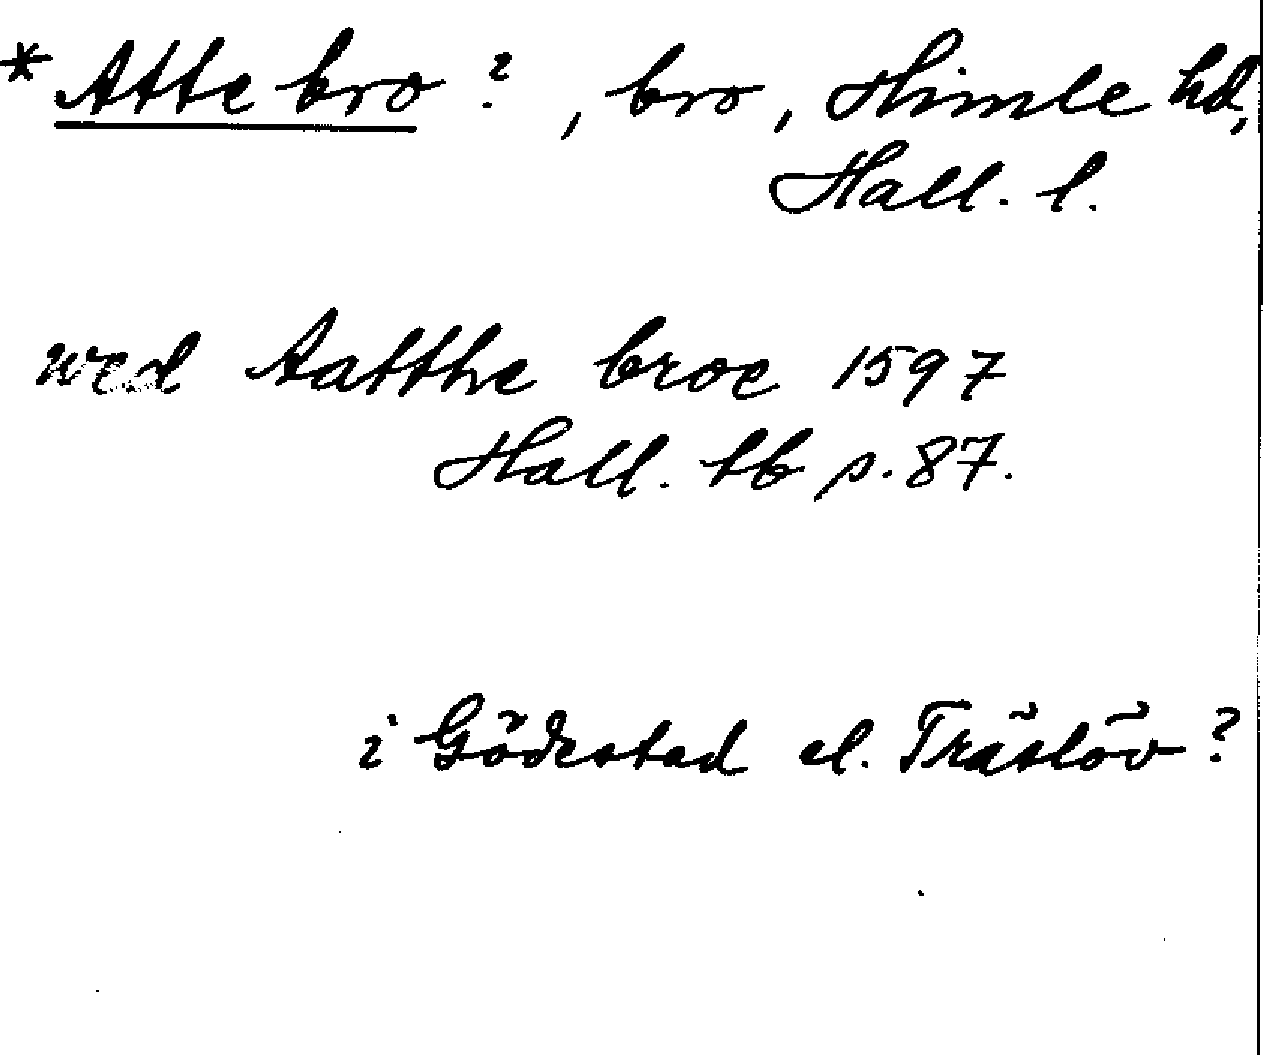 *Atte bro?, bro, Himle hd,
Hall. l.
wed Aatthe broe 1597
Hall. lb p. 87.
i Gödestad el. Träslöv?